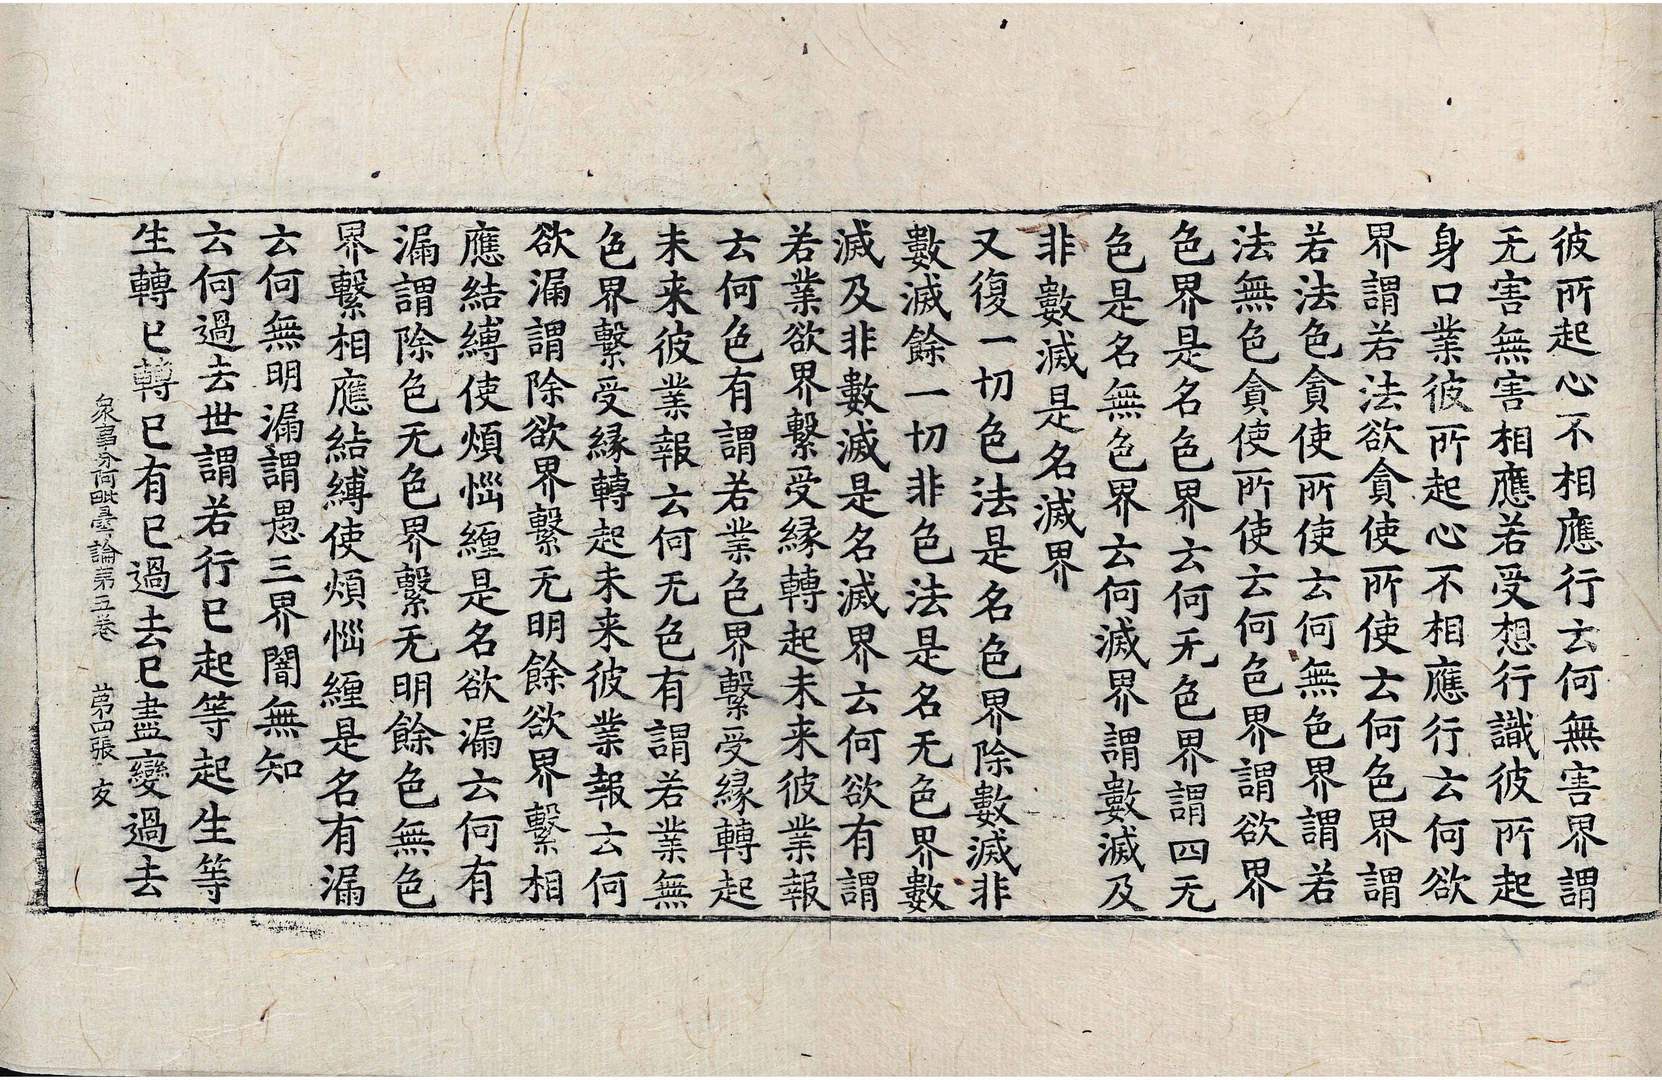 彼所起心不相應行云何無害界謂
无害無害相應若受想行識彼所起
身口業彼所起心不相應行云何欲
界謂若法欲貪使所使云何色界謂
若法色貪使所使云何無色界謂若
法無色貪使所使云何色界謂欲界
色界是名色界云何无色界謂四无
色是名無色界云何滅界謂數滅及
非數滅是名滅界
又復一切色法是名色界除數滅非
數滅餘一切非色法是名无色界數
滅及非數滅是名滅界云何欲有謂
若業欲界繫受縁轉起未来彼業報
云何色有謂若業色界繫受縁轉起
未来彼業報云何无色有謂若業無
色界繫受縁轉起未来彼業報云何
欲漏謂除欲界繫无明餘欲界繫相
應結縛使煩惱纏是名欲漏云何有
漏謂除色无色界繫无明餘色無色
界繫相應結縛使煩惱纏是名有漏
云何無明漏謂愚三界闇無知
云何過去世謂若行已起等起生等
生轉已轉已有已過去已盡變過去
衆事分阿毗曇論第五卷 第四張 友